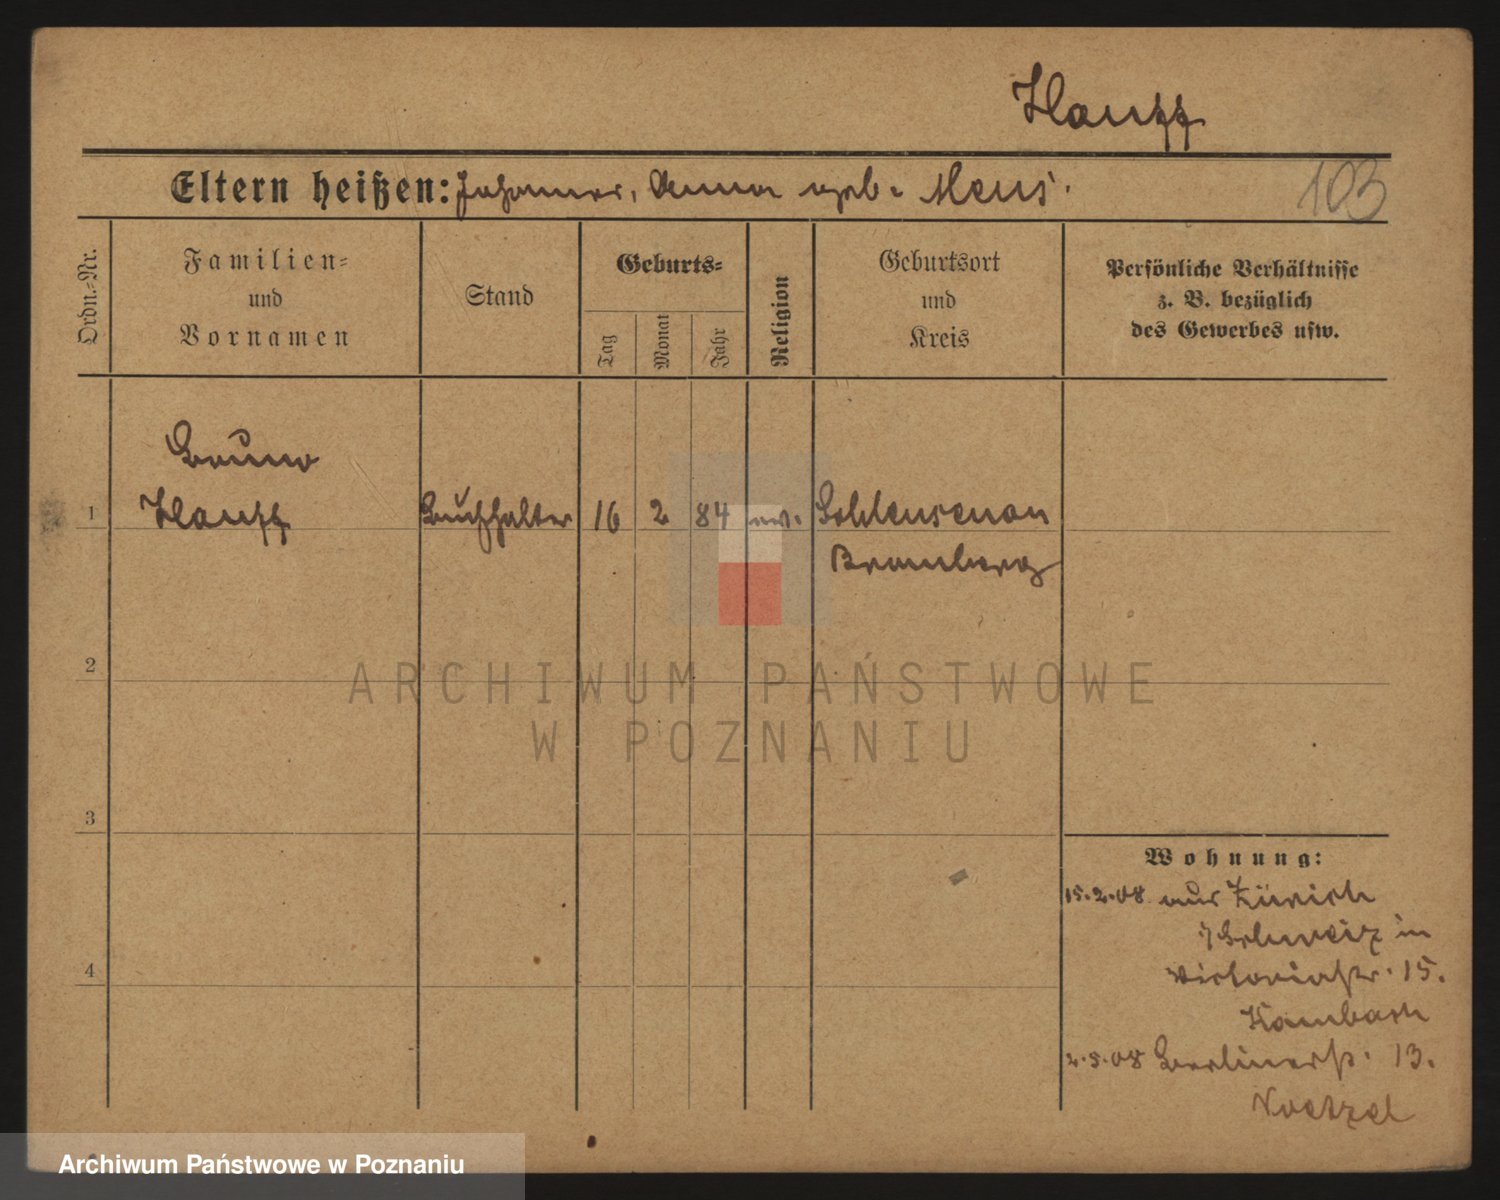 Hauff
Eltern heißen: Johannes, Anna geb. Meus.
103
Ordn.-Nr.
Familien-
und
Vornamen
Stand
Geburts-
Tag
Monat
Jahr
Religion
Geburtsort
und
Kreis
Persönliche Verhältnisse
z. B. bezüglich
des Gewerbes usw.
Bruno
1 Hauff Buchhalter 16 2 84 ev. Schleusenau
Bromberg
2
3
4
Wohnung:
15.2.08 aus Zürich
Schweiz in
Victoriastr. 15.
Hambach
2.3.08 Berlinerstr. 13.
ARCHIWUM PAŃSTWOWE
W POZNANIU
Archiwum Państwowe w Poznaniu